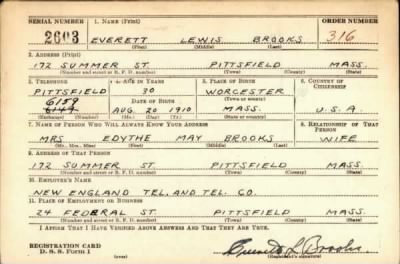 SERIAL NUMBER 1. NAME (Print) ORDER NUMBER
2603 EVERETT LEWIS BROOKS 316
(First) (Middle) (Last)
2. ADDRESS (Print)
172 SUMMER ST. PITTSFIELD MASS.
(Number and street or R. F. D. number) (Town) (County) (State)
3. TELEPHONE 4. AGE IN YEARS 5. PLACE OF BIRTH 6. COUNTRY OF CITIZENSHIP
PITTSFIELD 30 WORCESTER
6159 DATE OF BIRTH (Town or county)
6149 AUG. 20 1910 MASS. U.S.A.
(Exchange) (Number) (Mo.) (Day) (Yr.) (State or country)
7. NAME OF PERSON WHO WILL ALWAYS KNOW YOUR ADDRESS 8. RELATIONSHIP OF THAT PERSON
MRS EDYTHE MAY BROOKS WIFE
(Mr., Mrs., Miss) (First) (Middle) (Last)
9. ADDRESS OF THAT PERSON
172 SUMMER ST. PITTSFIELD MASS.
(Number and street or R. F. D. number) (Town) (County) (State)
10. EMPLOYER'S NAME
NEW ENGLAND TEL. AND TEL. CO.
11. PLACE OF EMPLOYMENT OR BUSINESS
24 FEDERAL ST. PITTSFIELD MASS.
(Number and street or R. F. D. number) (Town) (County) (State)
I AFFIRM THAT I HAVE VERIFIED ABOVE ANSWERS AND THAT THEY ARE TRUE.
REGISTRATION CARD
D. S. S. Form 1 Everett L Brooks
(Registrant's signature)